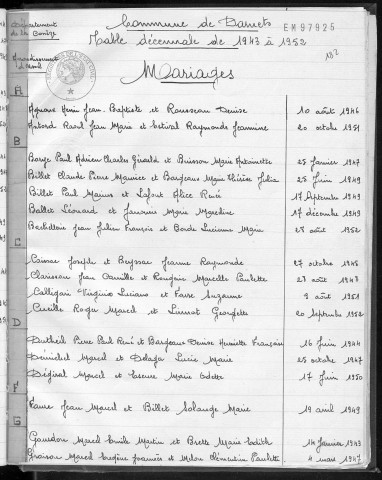 Département
de la Corrèze
Commune de Darnets
EM97925
Table décennale de 1943 à 1952
182
Arrondissement
d'Ussel
Mariages
A
Henri Jean Baptiste et Rousseau Denise 10 août 1946
Raoul Jean Marie et Estival Raymonde Jeannine 20 octobre 1951
B
Borge Paul Adrien Charles Girald et Buisson Marie Antoinette 25 janvier 1947
Billet Claude Pierre Maurice et Bargeaux Marie Thérèse Julia 25 juin 1949
Billet Paul Marius et Lafont Alice René 17 Septembre 1949
Ballet Léonard et Marie 17 décembre 1949
Jean Julien François et Borde Lucienne Marie 28 août 1952
C
Caissac Joseph et Beyssac Jeanne Raymonde 27 octobre 1945
Jean Camille et Marcelle Paulette 28 août 1948
Calligari Virginio Luciano et Favre Suzanne 9 août 1951
Cueille Roger Marcel et Georgette 20 Septembre 1952
D
Dutheil Pierre Paul René et Bargeaux Denise Henriette Françoise 16 juin 1944
Marcel et Lucie Marie 25 octobre 1947
Marcel et Marie Odette 17 juin 1950
F
Faure Jean Marcel et Billet Solange Marie 19 avril 1949
G
Gourdon Marcel Emile Martin et Brette Marie Edith 14 janvier 1943
Marcel Eugène et Clémentine Paulette 4 mars 1947